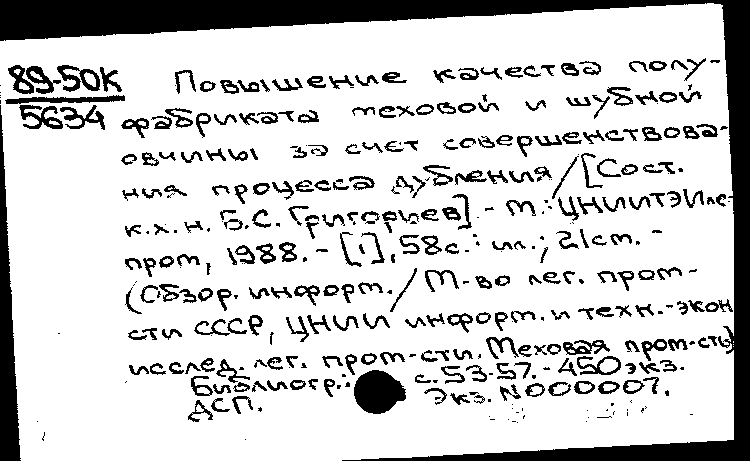 89-50К Повышение качества полу-
5634 фабриката меховой и шубной
овчины за счет совершенствова-
ния процесса дубления / [Сост.
к.х.н. Б.С. Григорьев]. - М.: ЦНИИТЭИлег-
пром, 1988. - [1], 58с.: ил.; 21см. -
(Обзор. информ. / М-во лег. пром-
сти СССР, ЦНИИ информ. и техн.-экон
исслед. лег. пром-сти. Меховая пром-сть)
Библиогр.: с. 53-57. - 450 экз.
ДСП. Экз. N000007.